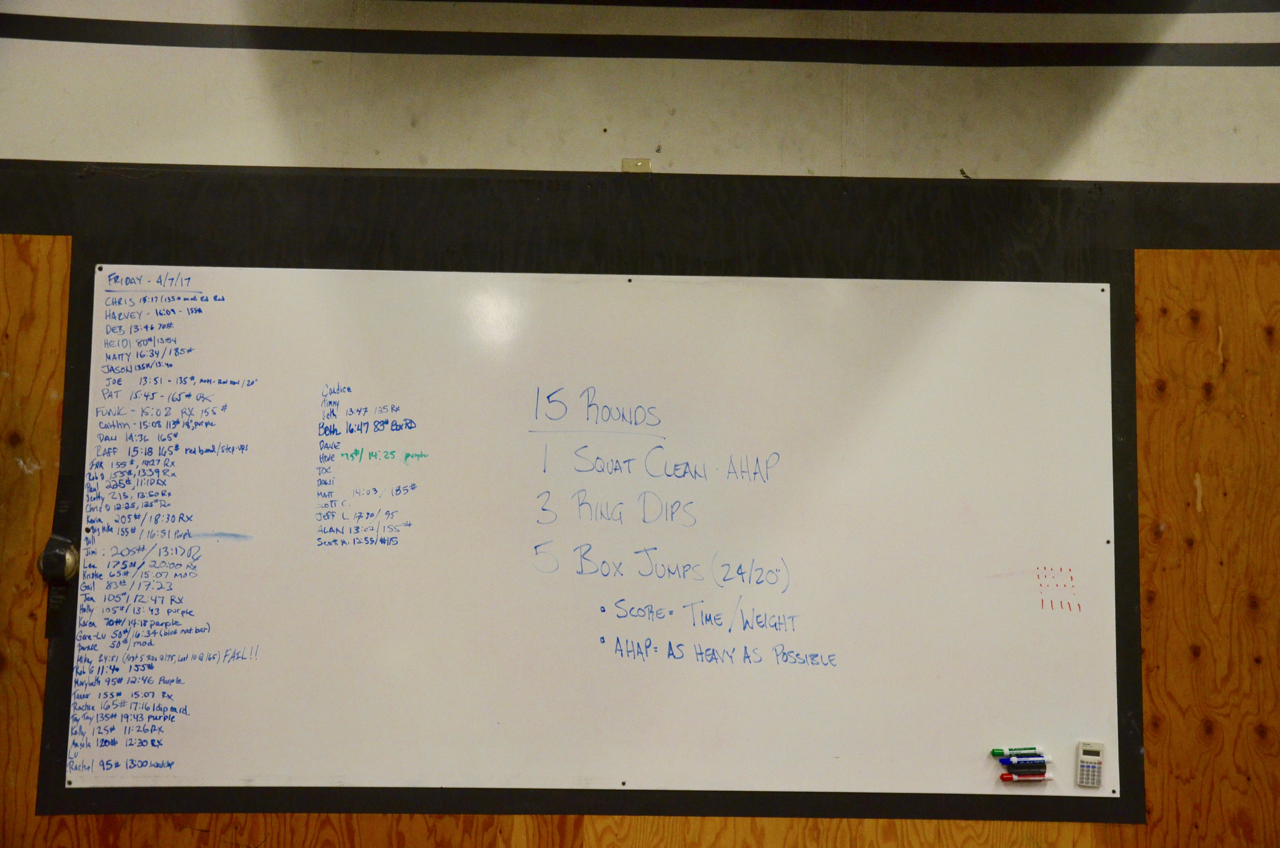 FRIDAY - 4/7/17
CHRIS
HARVEY - 16:09 - 155#
DEB 13:46 70#
HEIDI 80#/13:54
MATTY 16:34/185#
JASON 135#/13:40
JOE 13:51 - 135#
PAT 15:45 - 165# RX
FUNK - 15:02 RX 155#
Caitlin - 15:08 purple
DAN 14:36 165#
RAFF 15:18 165# red band/step-ups
155#, 14:27 Rx
Rob D 155#, 13:39 Rx
Paul 225#, 11:10 Rx
Scotty 215, 13:50 Rx
Chris D 12:25, 125# Rx
Kevin 205#/18:30 RX
155#/16:51 Purple
Bill
Jimi: 205#/13:17 Rx
Lee 175#/20:00 Rx
Kristie 65#/15:07 MOD
Gail 83#/17:23
Jen 105#/12:47 RX
Holly 105#/13:43 purple
Karen 70#/14:18 purple
Gene-Lu 50#/16:34 (blue mat bar)
50#/mod
Mikey 24:51 FAIL!!
Rob G 11:40 155#
Marybeth 95# 12:46 Purple
Tanner 155# 15:07 Rx
Rachel 165# 17:16
Tay Tay 135# 19:43 purple
Kelly 125# 11:26 RX
Angela 120# 12:30 RX
Lu
Rachel 95# 13:00
Candice
Jimmy
Seth 13:47 135 Rx
Beth 16:47 83# Box RD
DAVE
75#/14:25 purple
JOE
MATT 14:03/185#
SCOTT C.
JEFF L 17:30/95
ALAN 13:02/155#
Scott M. 12:55/#115
15 ROUNDS
1 SQUAT CLEAN - AHAP
3 RING DIPS
5 BOX JUMPS (24/20")
• SCORE = TIME/WEIGHT
• AHAP = AS HEAVY AS POSSIBLE